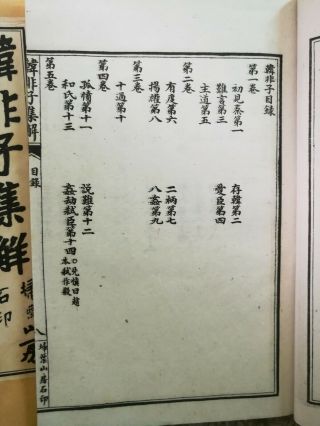 韓非子目錄
第一卷
初見秦第一
存韓第二
難言第三
愛臣第四
主道第五
第二卷
有度第六
二柄第七
揚權第八
八姦第九
第三卷
十過第十
第四卷
孤憤第十一
說難第十二
和氏第十三
姦劫弒臣第十四
第五卷
韓非子集解
目錄
掃葉山房石印
韓非子集解
石印